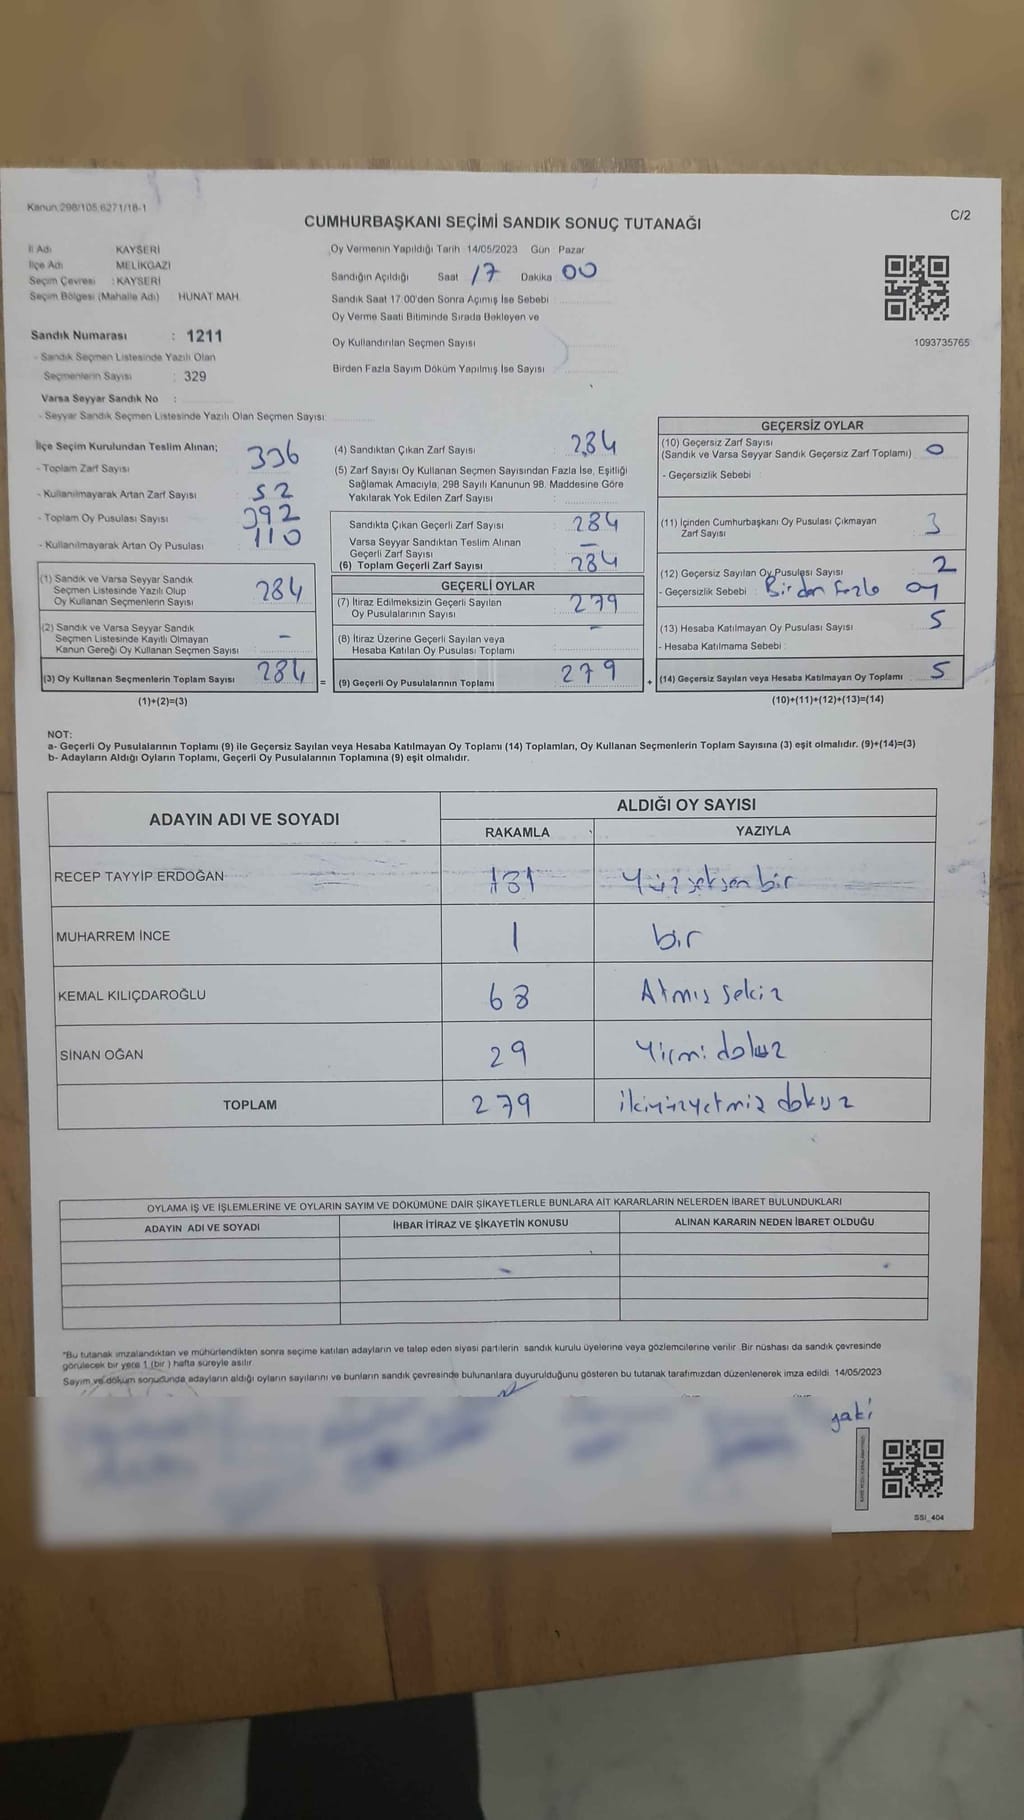 Kanun.298/105,6271/18-1
C/2
CUMHURBAŞKANI SEÇİMİ SANDIK SONUÇ TUTANAĞI
İl Adı KAYSERİ
İlçe Adı MELİKGAZİ
Seçim Çevresi : KAYSERİ
Seçim Bölgesi (Mahalle Adı) HUNAT MAH.
Oy Vermenin Yapıldığı Tarih 14/05/2023 Gün Pazar
Sandığın Açıldığı Saat 17 Dakika 00
Sandık Saat 17:00'den Sonra Açımış İse Sebebi
Oy Verme Saati Bitiminde Sırada Bekleyen ve
Oy Kullandırılan Seçmen Sayısı
Birden Fazla Sayım Döküm Yapılmış İse Sayısı
1093735765
Sandık Numarası : 1211
- Sandık Seçmen Listesinde Yazılı Olan
Seçmenlerin Sayısı : 329
Varsa Seyyar Sandık No :
- Seyyar Sandık Seçmen Listesinde Yazılı Olan Seçmen Sayısı:
İlçe Seçim Kurulundan Teslim Alınan;
- Toplam Zarf Sayısı : 336
- Kullanılmayarak Artan Zarf Sayısı : 52
- Toplam Oy Pusulası Sayısı : 392
- Kullanılmayarak Artan Oy Pusulası : 110
(1) Sandık ve Varsa Seyyar Sandık
Seçmen Listesinde Yazılı Olup
Oy Kullanan Seçmenlerin Sayısı : 284
(2) Sandık ve Varsa Seyyar Sandık
Seçmen Listesinde Kayıtlı Olmayan
Kanun Gereği Oy Kullanan Seçmen Sayısı : -
(3) Oy Kullanan Seçmenlerin Toplam Sayısı 284 =
(1)+(2)=(3)
(4) Sandıktan Çıkan Zarf Sayısı : 284
(5) Zarf Sayısı Oy Kullanan Seçmen Sayısından Fazla İse, Eşitliği
Sağlamak Amacıyla, 298 Sayılı Kanunun 98. Maddesine Göre
Yakılarak Yok Edilen Zarf Sayısı :
Sandıkta Çıkan Geçerli Zarf Sayısı : 284
Varsa Seyyar Sandıktan Teslim Alınan
Geçerli Zarf Sayısı : -
(6) Toplam Geçerli Zarf Sayısı : 284
GEÇERLİ OYLAR
(7) İtiraz Edilmeksizin Geçerli Sayılan
Oy Pusulalarının Sayısı : 279
(8) İtiraz Üzerine Geçerli Sayılan veya
Hesaba Katılan Oy Pusulası Toplamı : -
(9) Geçerli Oy Pusulalarının Toplamı : 279 +
GEÇERSİZ OYLAR
(10) Geçersiz Zarf Sayısı
(Sandık ve Varsa Seyyar Sandık Geçersiz Zarf Toplamı) : 0
- Geçersizlik Sebebi :
(11) İçinden Cumhurbaşkanı Oy Pusulası Çıkmayan
Zarf Sayısı : 3
(12) Geçersiz Sayılan Oy Pusulası Sayısı : 2
- Geçersizlik Sebebi : Birden Fazla oy
(13) Hesaba Katılmayan Oy Pusulası Sayısı : 5
- Hesaba Katılmama Sebebi :
(14) Geçersiz Sayılan veya Hesaba Katılmayan Oy Toplamı : 5
(10)+(11)+(12)+(13)=(14)
NOT:
a- Geçerli Oy Pusulalarının Toplamı (9) ile Geçersiz Sayılan veya Hesaba Katılmayan Oy Toplamı (14) Toplamları, Oy Kullanan Seçmenlerin Toplam Sayısına (3) eşit olmalıdır. (9)+(14)=(3)
b- Adayların Aldığı Oyların Toplamı, Geçerli Oy Pusulalarının Toplamına (9) eşit olmalıdır.
ADAYIN ADI VE SOYADI ALDIĞI OY SAYISI
RAKAMLA YAZIYLA
RECEP TAYYİP ERDOĞAN 181 Yüzseksen bir
MUHARREM İNCE 1 bir
KEMAL KILIÇDAROĞLU 68 Atmış sekiz
SİNAN OĞAN 29 Yirmi dokuz
TOPLAM 279 ikiyüzyetmiz dokuz
OYLAMA İŞ VE İŞLEMLERİNE VE OYLARIN SAYIM VE DÖKÜMÜNE DAİR ŞİKAYETLERLE BUNLARA AİT KARARLARIN NELERDEN İBARET BULUNDUKLARI
ADAYIN ADI VE SOYADI İHBAR İTİRAZ VE ŞİKAYETİN KONUSU ALINAN KARARIN NEDEN İBARET OLDUĞU
"Bu tutanak imzalandıktan ve mühürlendikten sonra seçime katılan adayların ve talep eden siyasi partilerin sandık kurulu üyelerine veya gözlemcilerine verilir. Bir nüshası da sandık çevresinde
görülecek bir yere 1 (bir) hafta süreyle asılır.
Sayım ve döküm sonucunda adayların aldığı oyların sayılarını ve bunların sandık çevresinde bulunanlara duyurulduğunu gösteren bu tutanak tarafımızdan düzenlenerek imza edildi. 14/05/2023
SSI_404